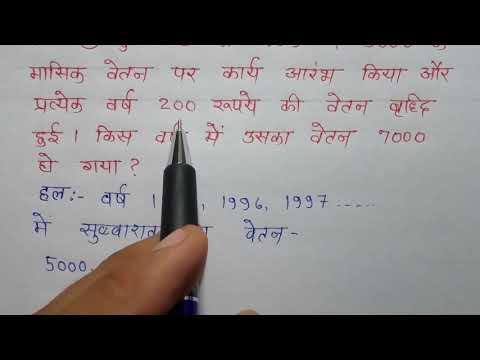 मासिक वेतन पर कार्य आरंभ किया और
प्रत्येक वर्ष 200 रूपये की वेतन वृध्दि
हुई। किस में उसका वेतन 7000
हो गया ?
हल:- वर्ष 1996, 1997.....
में वेतन-
5000,